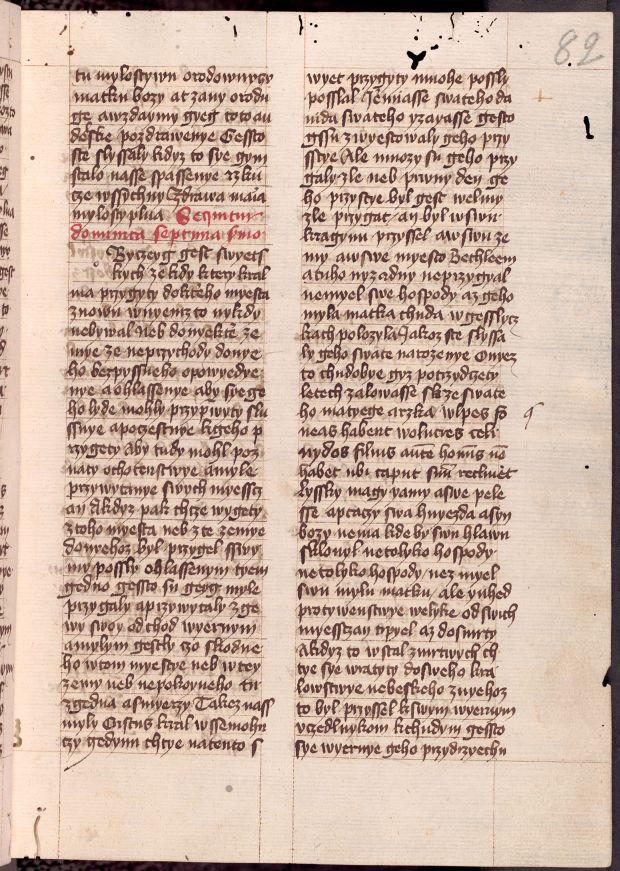 82
tu mylostywu orodownyczy
matku bozy at zany orodu
ge a wzdaymy gyeg to to au
destie pozdrawenye Gessto
ste slyssaly kdyz to sye gym
stalo nasse spassenye rzku
cze wssychny Zdrawa maia
mylosty plna Sequitur
dominica septima
Byczeyg gest swyets
kych ze kdy ktery kral
ma przygyty do kteho myesta
znowu w nyemz to nykdy
nebywal neb do nyekte ze
mye ze neprzychody donye
ho bezpyssneho opowyedye
nye a ohlassenye aby sye ge
ho lyde mohly przyprwyty slu
ssnye a poczestnye k geho p
rzygety aby tudy mohl poz
naty ochotenstwye a myle
przywytanye swych myessc
an A kdyz pak chtze wygety
z toho myesta neb z te zemye
do nyehoz byl przygel sswy
my possly ohlassenym tyem
gedno gessto su geyg myle
przygaly a przywytaly zge
wy swoy odchod wyernym
a mylym gestly czo sskodne
ho w tom myestye neb w tey
zemy neb nepokoyneho tu
zgedna a smyerzy Takez nass
myly Cristus kral wssemohu
czy gedynu chtye na tento s
wyet przygyty mnohe possly
posslal Jeremiasse swateho da
vida swateho yzayasse gesto
gssu zwyestowaly geho przy
sstye Ale mnozy su geho przy
galy zle neb prwny den ge
ho przystye byl gest welmy
zle przygat an byl w swu
kragynu przyssel a w swu ze
my a w swe myesto Bethleem
a tu ho nyzadny neprzygyal
nemyel swe hospody az geho
myla matka chuda w gesslycz
kach polozyla Jakoz ste slyssa
ly geho swate narozenye On yez
to chudobye gyz po trzydczety
letech zalowasse skrze swate
ho matyege a rzka wlpes fo
neas habent wolucres celi
nydos filius aute hominis non
habet ubi caput suum reclinet
Lyssky magy yamy a swe pele
sse a ptaczy swa hnyezda a syn
bozy nema kde by swu hlawu
sklonyl ne tolyko hospody
ne tolyko hospody nez myel
swu mylu matku ale yuhed
protywenstwye welyke od swich
myessczan trpyel az do smrty
A kdyz to wstal z mrtwych ch
tye sye wratyty do sweho kra
lowstwye nebeskeho z nyehoz
to byl przyssel k swym wyernym
uczedlnykom k chudym gessto
sye wyernye geho przydrzyechu